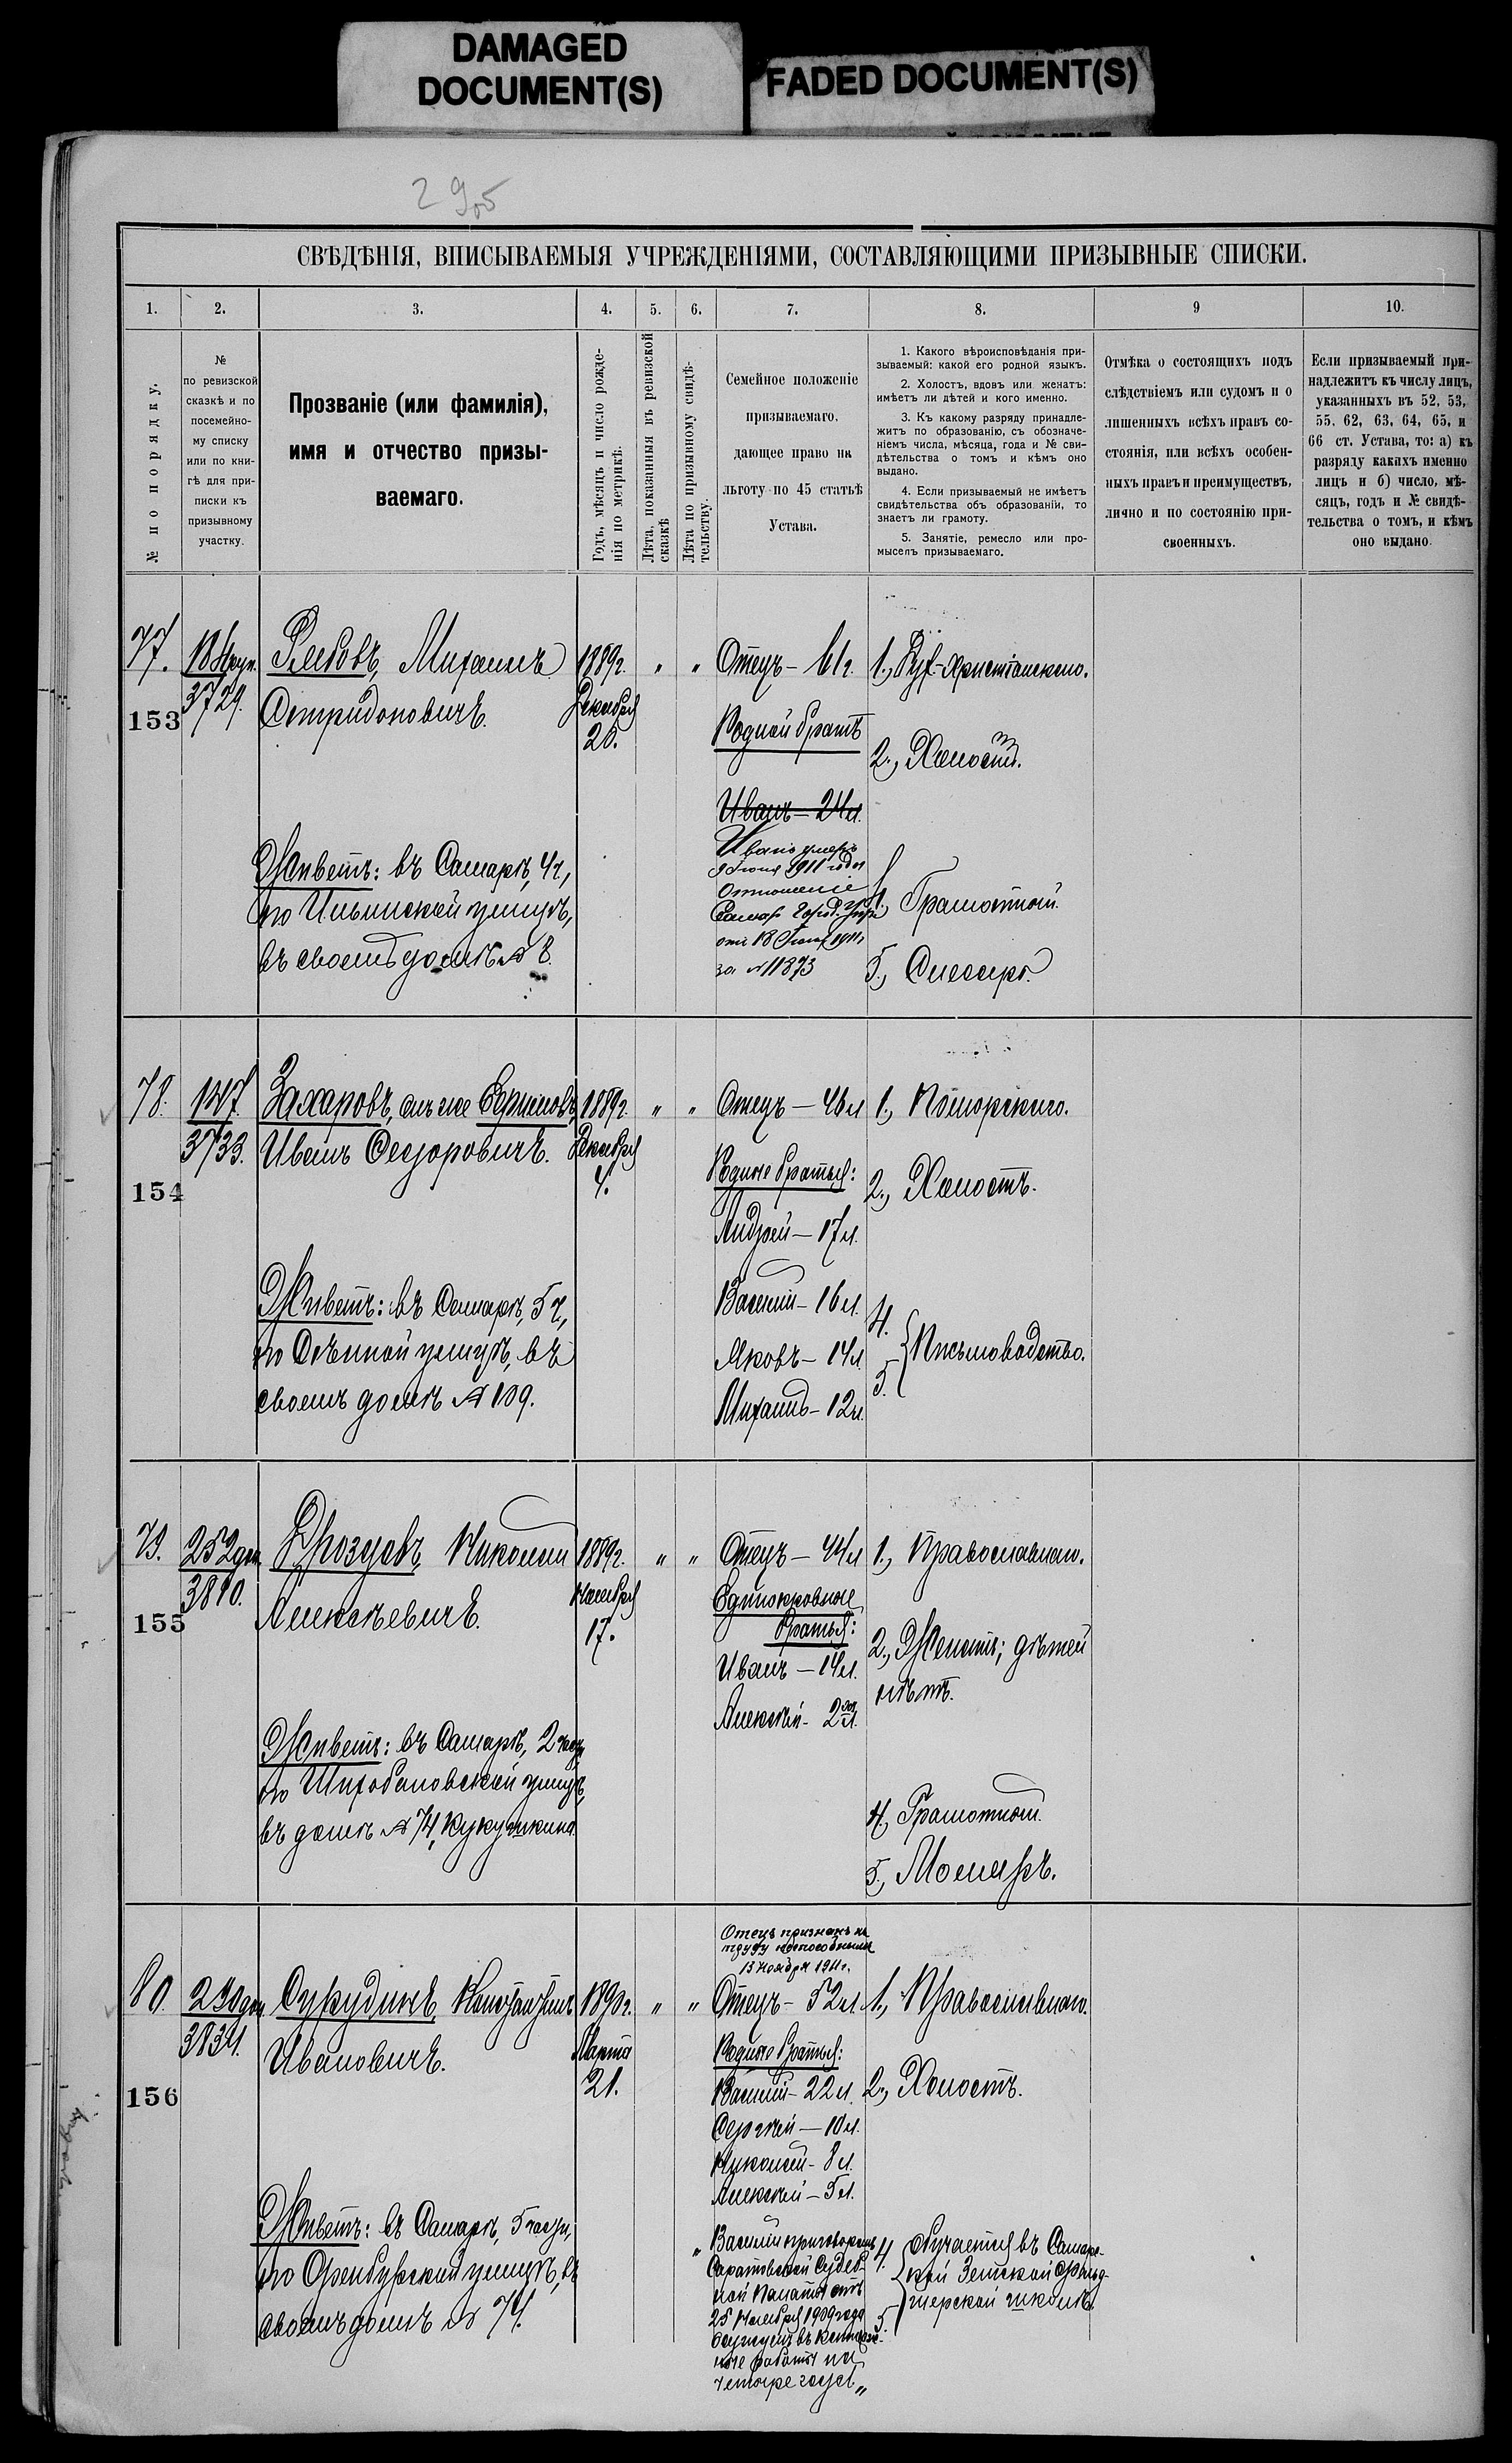 DAMAGED
DOCUMENT(S)
FADED DOCUMENT(S)
295
СВѢДѢНІЯ, ВПИСЫВАЕМЫЯ УЧРЕЖДЕНІЯМИ, СОСТАВЛЯЮЩИМИ ПРИЗЫВНЫЕ СПИСКИ.
1. 2. 3. 4. 5. 6. 7. 8. 9 10.
№ по порядку.
№
по ревизской
сказкѣ и по
посемейно-
му списку
или по кни-
гѣ для при-
писки къ
призывному
участку.
Прозваніе (или фамилія),
имя и отчество призы-
ваемаго.
Годъ, мѣсяцъ и число рожде-
нія по метрикѣ.
Лѣта, показанныя въ ревизской
сказкѣ
Лѣта по призывному свидѣ-
тельству.
Семейное положеніе
призываемаго,
дающее право на
льготу по 45 статьѣ
Устава.
1. Какого вѣроисповѣданія при-
зываемый: какой его родной языкъ.
2. Холостъ, вдовъ или женатъ:
имѣетъ ли дѣтей и кого именно.
3. Къ какому разряду принадле-
житъ по образованію, съ обозначе-
ніемъ числа, мѣсяца, года и № сви-
дѣтельства о томъ и кѣмъ оно
выдано.
4. Если призываемый не имѣетъ
свидѣтельства объ образованіи, то
знаетъ ли грамоту.
5. Занятіе, ремесло или про-
мыселъ призываемаго.
Отмѣка о состоящихъ подъ
слѣдствіемъ или судомъ и о
лишенныхъ всѣхъ правъ со-
стоянія, или всѣхъ особен-
ныхъ правъ и преимуществъ,
лично и по состоянію при-
своенныхъ.
Если призываемый при-
надлежитъ къ числу лицъ,
указанныхъ въ 52, 53,
55, 62, 63, 64, 65, и
66 ст. Устава, то: а) къ
разряду какихъ именно
лицъ и б) число, мѣ-
сяцъ, годъ и № свидѣ-
тельства о томъ, и кѣмъ
оно выдано.
77.
3729.
153
Михаилъ
Спиридоновичъ.
1889г.
Декабря
20.
" "
Отецъ - 61г.
Родной братъ
Иванъ - 24л.
Иванъ умеръ
9 Іюня 1911 года
Отношеніе
Самар. Город. Упр.
отъ 18 Іюня 1911г
за №11873
1., Дух-христіанскаго.
2., Холостъ.
4. Грамотный.
5., Слесарь.
Живетъ: въ Самарѣ, 4ч,
по Ильинской улицѣ,
въ своемъ домѣ № 8.
78.
147.
3733.
154
Захаровъ, онъ же Ефимовъ,
Иванъ Ѳедоровичъ.
1889г.
Декабря
4.
" "
Отецъ - 46л
Родные братья:
Андрей - 17л.
Василій - 16л.
Яковъ - 14л.
Михаилъ - 12л.
1., Поморскаго.
2., Холостъ.
4.
5. Письмоводство.
Живетъ: въ Самарѣ, 5ч,
по улицѣ, въ
своемъ домѣ № 109.
79.
252доп.
3810.
155
Дроздовъ, Николай
Алексѣевичъ.
1889г.
Ноября
17.
" "
Отецъ - 44л
Единокровные
братья:
Иванъ - 14л.
Алексѣй - 2л.
1., Православнаго.
2., Женатъ; дѣтей
нѣтъ.
4., Грамотный.
5., Маляръ.
Живетъ: въ Самарѣ, 2 части,
по Шихобаловской улицѣ,
въ домѣ № 74, Кукушкина
80.
230доп.
3834.
156
Сурудинъ, Константинъ
Ивановичъ.
1890г.
Марта
21.
" "
Отецъ признанъ къ
труду неспособнымъ
13 ноября 1911г.
Отецъ - 52л.
Родные братья:
Василій - 22л.
Сергѣй - 10л.
Николай - 8л.
Алексѣй - 5л.
"Василій приговоромъ
Саратовской Судеб-
ной Палаты отъ
25 Ноября 1909 года
осужденъ въ каторж-
ные работы на
четыре года"
1., Православнаго.
2., Холостъ.
4.
5. Обучается въ Самарс-
кой Земской Фельд-
шерской школѣ.
Живетъ: въ Самарѣ, 5 части,
по Оренбургской улицѣ, въ
своемъ домѣ № 74.